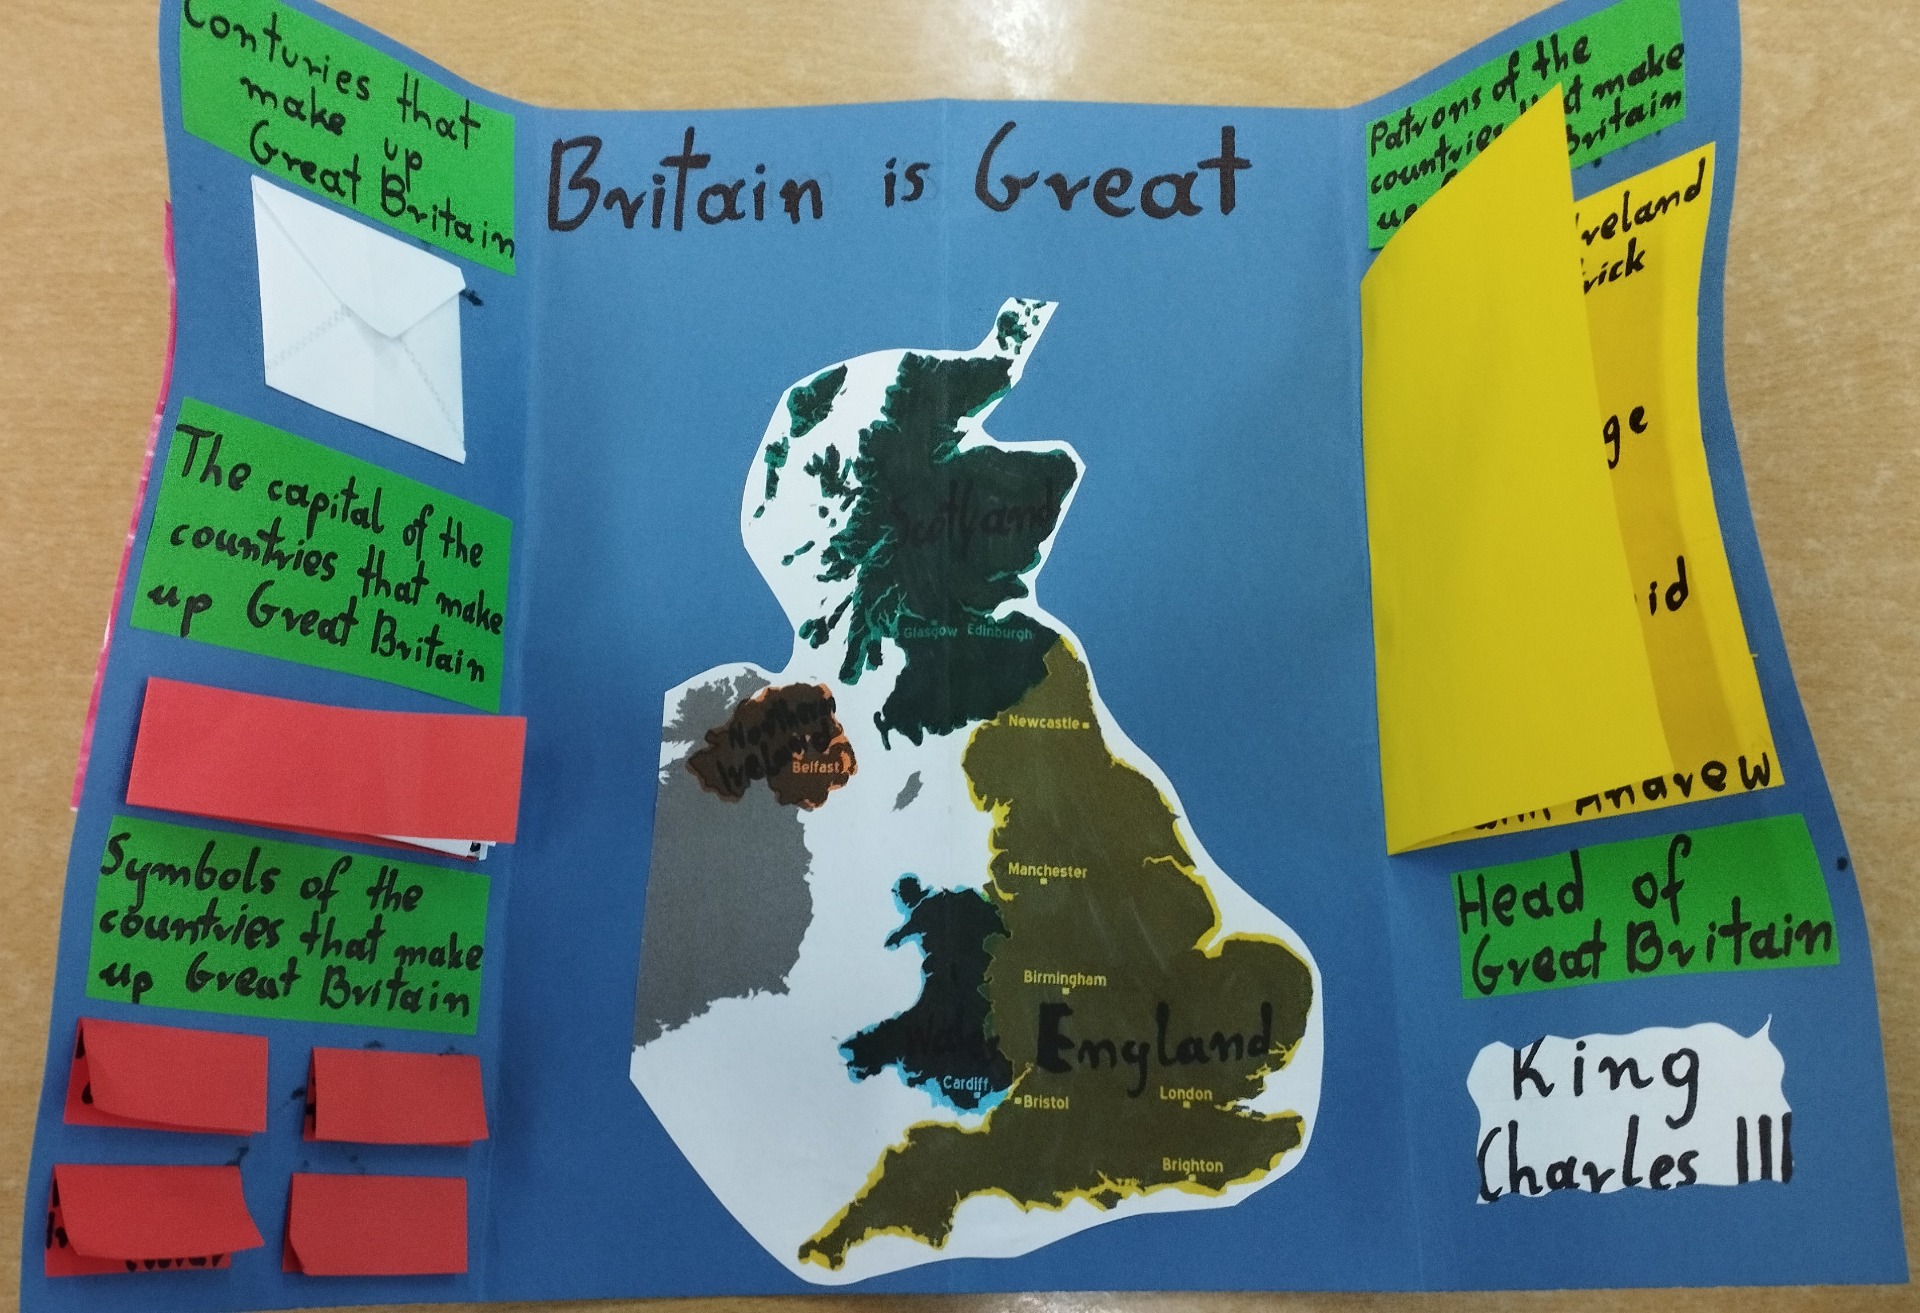 Conturies that
make up
Great Britain
The capital of the
countries that make
up Great Britain
Symbols of the
countries that make
up Great Britain
Britain is Great
Scotland
Glasgow Edinburgh
Northern
Ireland
Belfast
Newcastle
Manchester
Birmingham
Wales England
Cardiff
Bristol
London
Brighton
Patrons of the
make
Britain
up
reland
rick
ge
id
Andrew
Head of
Great Britain
King
Charles III